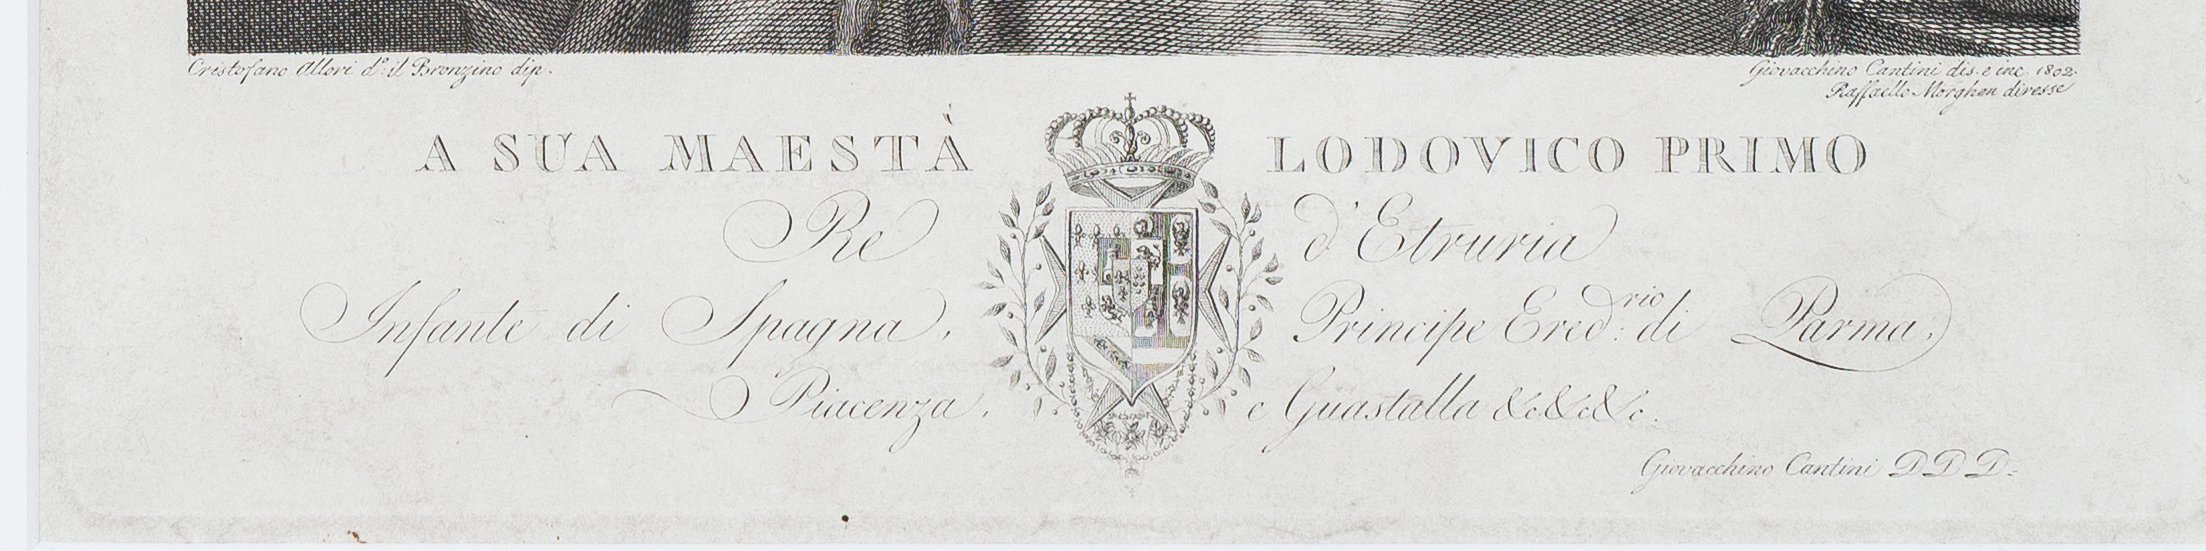 Cristofano Allori d.º il Bronzino dip.
Giovacchino Cantini dis. e inc. 1802.
Raffaello Morghen diresse
A SUA MAESTÀ LODOVICO PRIMO
Re d'Etruria
Infante di Spagna, Principe Ered.rio di Parma,
Piacenza, e Guastalla &c &c &c.
Giovacchino Cantini D D D.